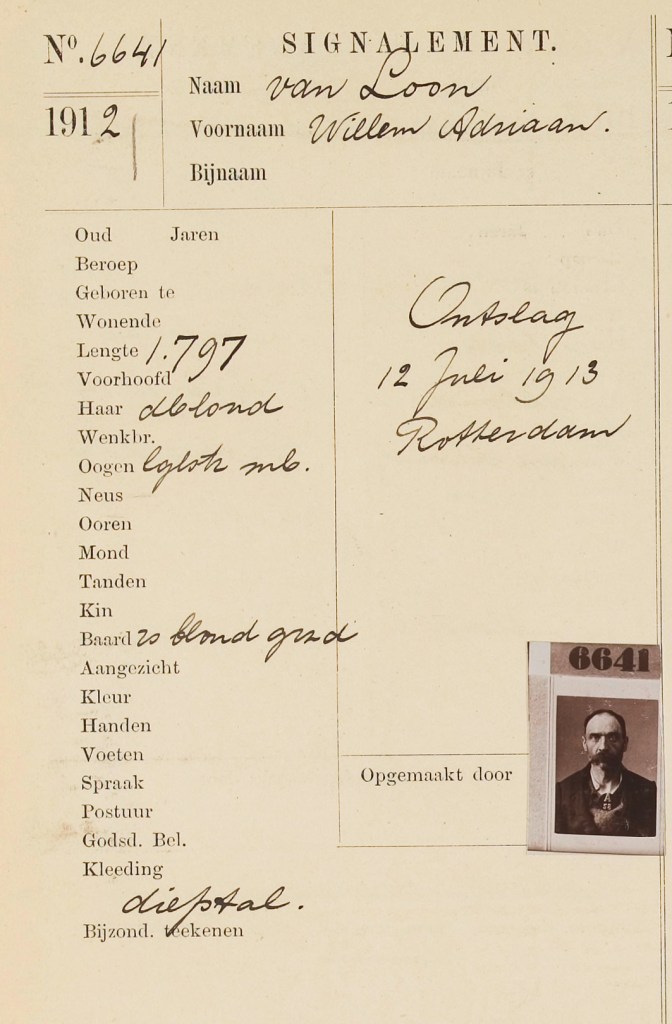 Nº. 6641
SIGNALEMENT.
1912
Naam van Loon
Voornaam Willem Adriaan.
Bijnaam
Oud Jaren
Beroep
Geboren te
Wonende
Lengte 1.797
Voorhoofd
Haar dblond
Wenkbr.
Oogen mb.
Neus
Ooren
Mond
Tanden
Kin
Baard blond
Aangezicht
Kleur
Handen
Voeten
Spraak
Postuur
Godsd. Bel.
Kleeding
diefstal.
Bijzond. teekenen
Ontslag
12 Juli 1913
Rotterdam
6641
Opgemaakt door